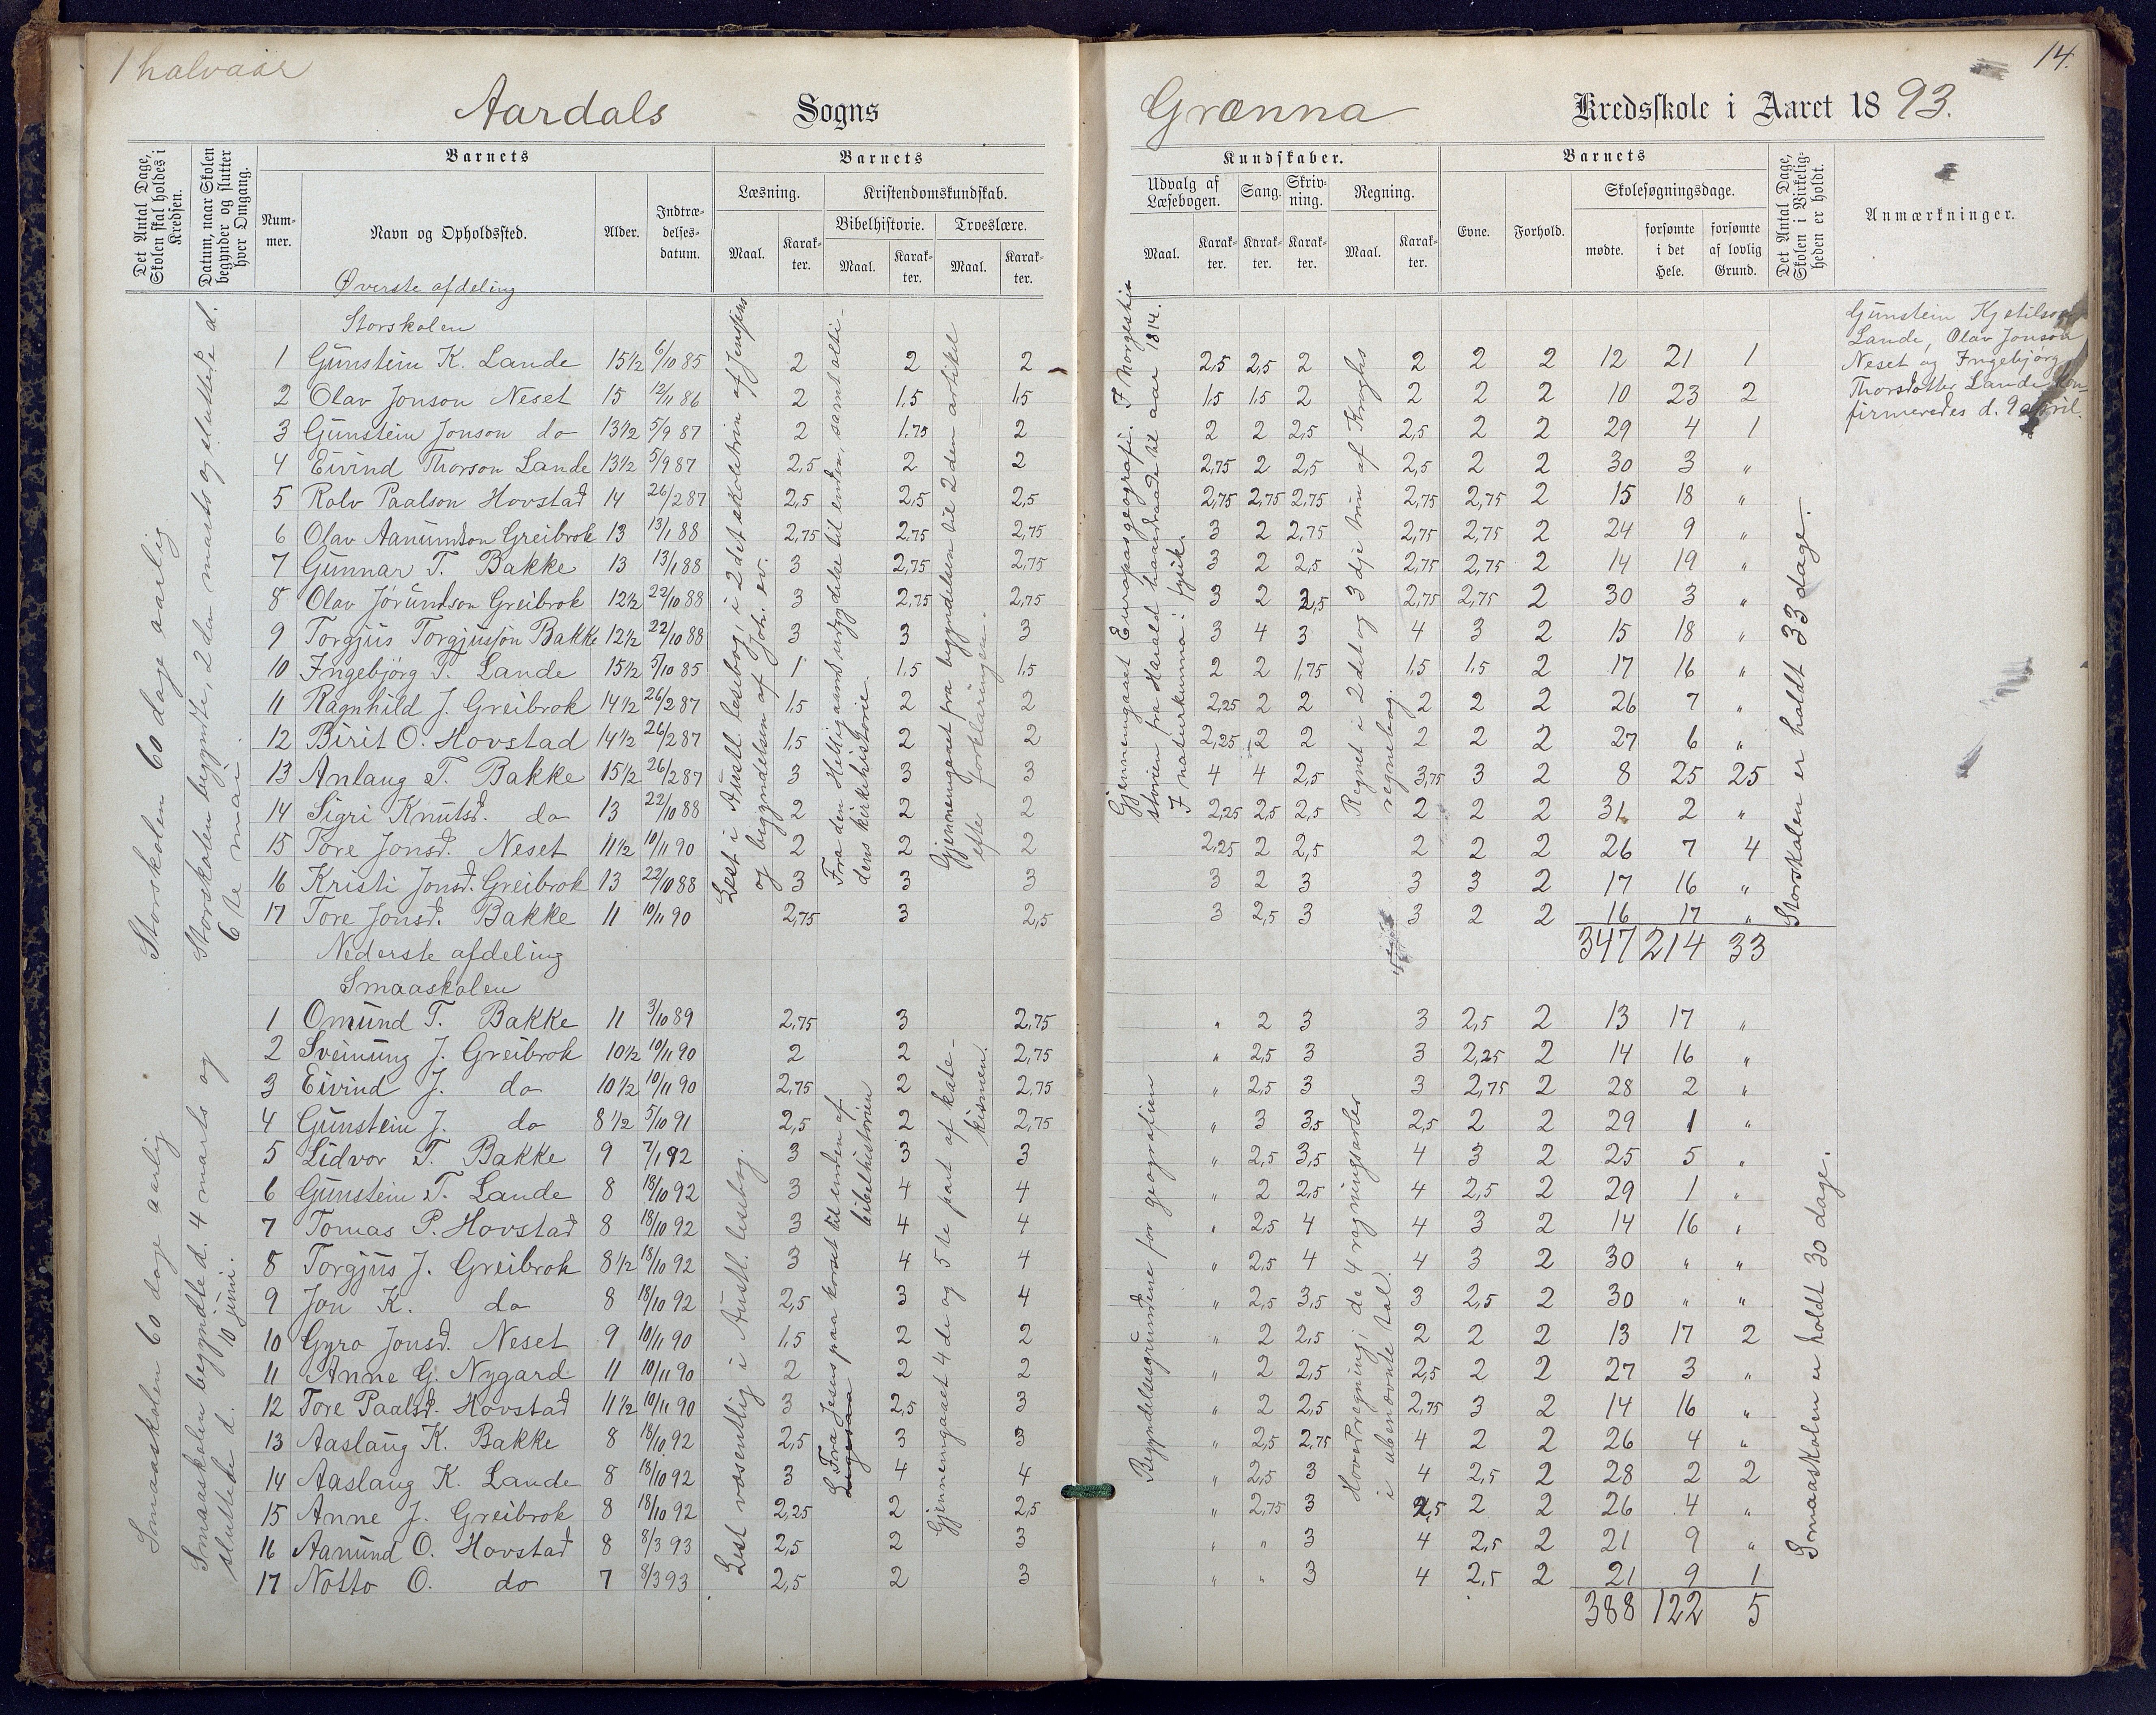 1 halvaar
14.
Aardals Sogns Grænna Kredsskole i Aaret 1893.
Det Antal Dage, Skolen skal holdes i Kredsen.
Datum, naar Skolen begynder og slutter hver Omgang.
Barnets
Nummer.
Navn og Opholdssted.
Alder.
Indtrædelsesdatum.
Barnets
Læsning.
Maal.
Karakter.
Kristendomskundskab.
Bibelhistorie.
Maal.
Karakter.
Troeslære.
Maal.
Karakter.
Kundskaber.
Udvalg af Læsebogen.
Maal.
Karakter.
Sang.
Karakter.
Skrivning.
Karakter.
Regning.
Maal.
Karakter.
Barnets
Evne.
Forhold.
Skolesøgningsdage.
mødte.
forsømte i det Hele.
forsømte af lovlig Grund.
Det Antal Dage, Skolen i Virkeligheden er holdt.
Anmærkninger.
Storskolen 60 dage aarlig
Storskolen begynte, 2 den marts og sluttede d.
6 te mai.
Øverste afdeling
Storskolen
1 Gunstein K. Lande 15 1/2 6/10 85 2 2 2 2,5 2,5 2 2 2 2 12 21 1
2 Olav Jonson Neset 15 12/11 86 2 1,5 1,5 1,5 1,5 2 2 2 2 10 23 2
3 Gunstein Jonson do 13 1/2 5/9 87 2 1,75 2 2 2 2,5 2,5 2 2 29 4 1
4 Eivind Thorson Lande 13 1/2 5/9 87 2,5 2 2 2,75 2 2,5 2,5 2 2 30 3 "
5 Rolv Paalson Hovstad 14 26/2 87 2,5 2,5 2,5 2,75 2,75 2,75 2,75 2,75 2 15 18 "
6 Olav Aanundson Greibrok 13 13/1 88 2,75 2,75 2,75 3 2 2,75 2,75 2,75 2 24 9 "
7 Gunnar T. Bakke 13 13/1 88 3 2,75 2,75 3 2 2,5 2,75 2,75 2 14 19 "
8 Olav Jørundson Greibrok 12 1/2 22/10 88 3 2,75 2,75 3 2 2,5 2,75 2,75 2 30 3 "
9 Torgjus Torgjusson Bakke 12 1/2 22/10 88 3 3 3 3 4 3 4 3 2 15 18 "
10 Ingebjørg T. Lande 15 1/2 5/10 85 1 1,5 1,5 2 2 1,75 1,5 1,5 2 17 16 "
11 Ragnhild J. Greibrok 14 1/2 26/2 87 1,5 2 2 2,25 2 2 2 2 2 26 7 "
12 Birit O. Hovstad 14 1/2 26/2 87 1,5 2 2 2,25 2 2 2 2 2 27 6 "
13 Anlaug T. Bakke 15 1/2 26/2 87 3 3 3 4 4 2,5 3,75 3 2 8 25 25
14 Sigri Knutsd. do 13 22/10 88 2 2 2 2,25 2,5 2,5 2 2 2 31 2 "
15 Tore Jonsd. Neset 11 1/2 10/11 90 2 2 2 2,25 2 2,5 2 2 2 26 7 4
16 Kristi Jonsd. Greibrok 13 22/10 88 3 3 3 3 2 3 3 3 2 17 16 "
17 Tore Jonsd. Bakke 11 10/11 90 2,75 3 2,5 3 2,5 3 3 2 2 16 17 "
347 214 33
Lest i Austl. lesebog, i 2 det skoletrin af Jensens
og begyndelsen af Joh. ev.
Fra den Helligaands udgydelse til enden, samt olti-
dens kirkehistorie.
Gjennemgaaet fra begyndelsen til 2 den artikel
efter forklaringen.
Gjennemgaaet Europas geografi. I Norgeshi
storien fra Harald haardraade til aar 1814.
I naturkunna: fysik.
Regnet i 2 det og 3 dje trin af Kroghs
regnebog.
Storskolen er holdt 33 dage.
Gunstein Kjetilson
Lande, Olav Jonson
Neset og Ingebjørg
Thorsdotter Lande kon-
firmeredes d. 9 april.
Smaaskolen 60 dage aarlig
Smaaskolen begyndte d. 4 marts og
sluttede d. 10 juni.
Nederste afdeling
Smaaskolen
1 Omund T. Bakke 11 3/10 89 2,75 3 2,75 " 2 3 3 2,5 2 13 17 "
2 Sveinung J. Greibrok 10 1/2 10/11 90 2 2 2,75 " 2,5 3 3 2,25 2 14 16 "
3 Eivind J. do 10 1/2 10/11 90 2,75 2 2,75 " 2,5 3 3 2,75 2 28 2 "
4 Gunstein J. do 8 1/2 5/10 91 2,5 2 2,75 " 3 3,5 2,5 2 2 29 1 "
5 Lidvor T. Bakke 9 7/1 92 3 3 3 " 2,5 3,5 4 3 2 25 5 "
6 Gunstein T. Lande 8 18/10 92 3 4 4 " 2 2,5 4 2,5 2 29 1 "
7 Tomas P. Hovstad 8 18/10 92 3 4 4 " 2,5 4 4 3 2 14 16 "
8 Torgjus J. Greibrok 8 1/2 18/10 92 3 4 4 " 2,5 4 4 3 2 30 " "
9 Jon K. do 8 18/10 92 2,5 3 4 " 2,5 3,5 3 2,5 2 30 " "
10 Gyro Jonsd. Neset 9 10/11 90 1,5 2 2 " 2 2,5 2 2 2 13 17 2
11 Anne G. Nygard 11 10/11 90 2 2 2 " 2 2,5 2,5 2 2 27 3 "
12 Tore Paalsd. Hovstad 11 1/2 10/11 90 3 2,5 3 " 2 2,5 2,75 3 2 14 16 "
13 Aaslaug K. Bakke 8 18/10 92 2,5 3 3 " 2,5 2,75 4 2 2 26 4 "
14 Aaslaug K. Lande 8 18/10 92 3 4 4 " 2,5 3 4 2,5 2 28 2 2
15 Anne J. Greibrok 8 18/10 92 2,25 2 2,5 " 2,75 3 2,5 2 2 26 4 "
16 Aanund O. Hovstad 8 8/3 93 2,5 2 3 " " 3 4 2,5 2 21 9 "
17 Notto O. do 7 8/3 93 2,5 2 3 " " 3 4 2,5 2 21 9 1
388 122 5
Lest væsentlig i Austl. lesebog.
Fra Jesus paa korset til enden af
bibelhistorien
Gjennemgaaet 4 de og 5 te part af kate-
kismen.
Begyndelsesgrundene for geografien
Hovedregning; de 4 regningsarter
i ubenævnte tal.
Smaaskolen er holdt 30 dage.